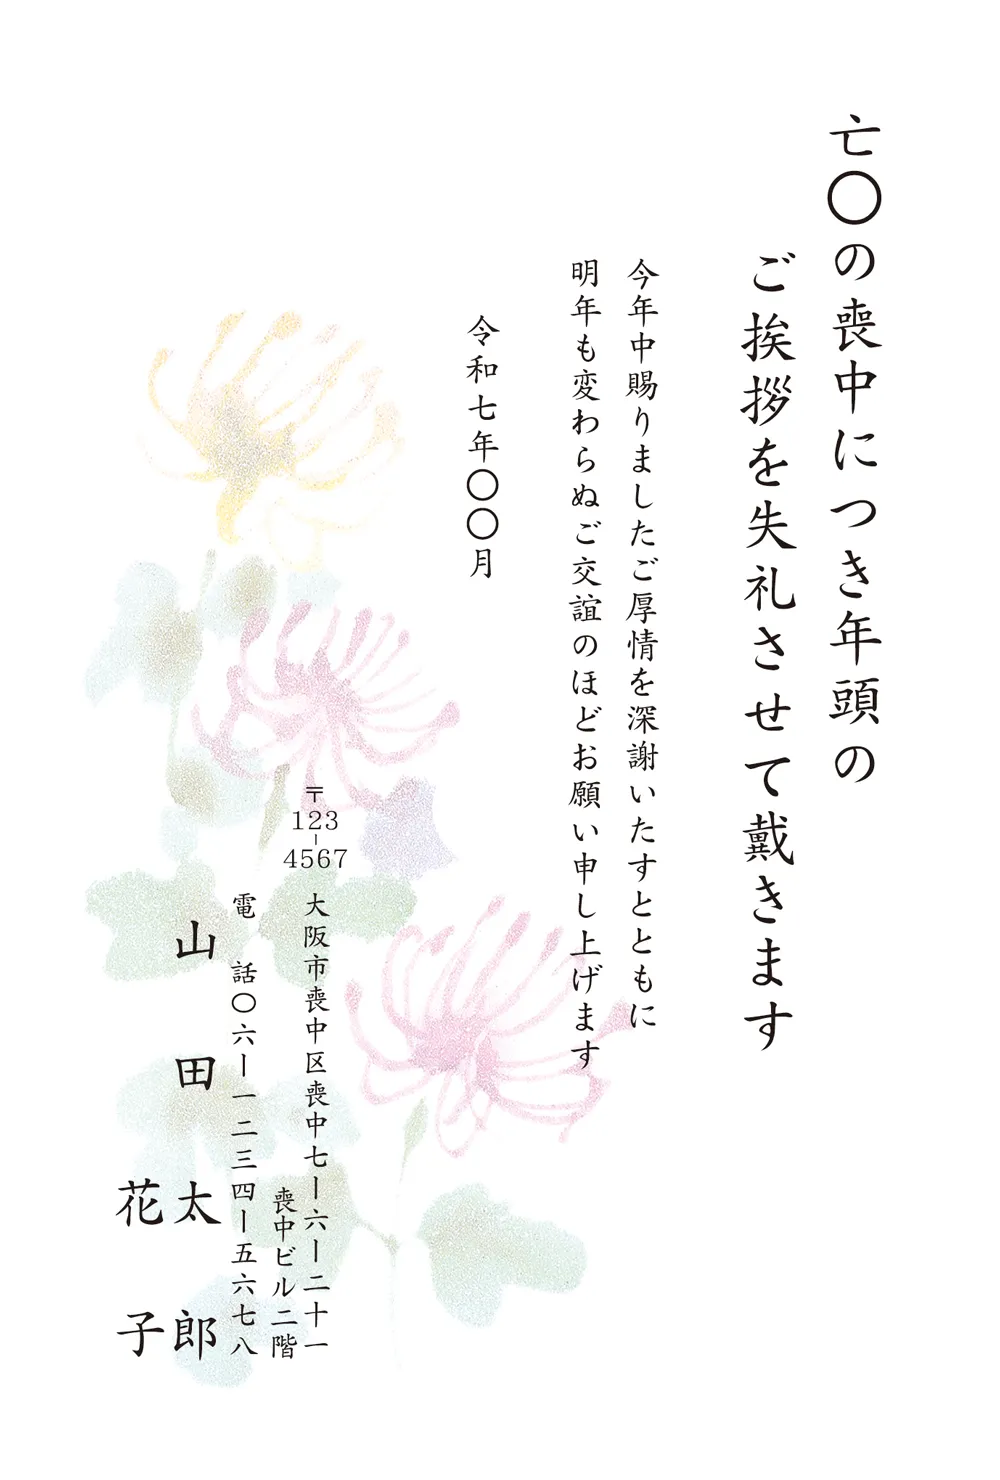 亡〇の喪中につき年頭の
ご挨拶を失礼させて戴きます
今年中賜りましたご厚情を深謝いたすとともに
明年も変わらぬご交誼のほどお願い申し上げます
令和七年〇〇月
〒123-4567
大阪市喪中区喪中七ー六ー二十一
喪中ビル二階
電話〇六ー一二三四ー五六七八
山田太郎
花子